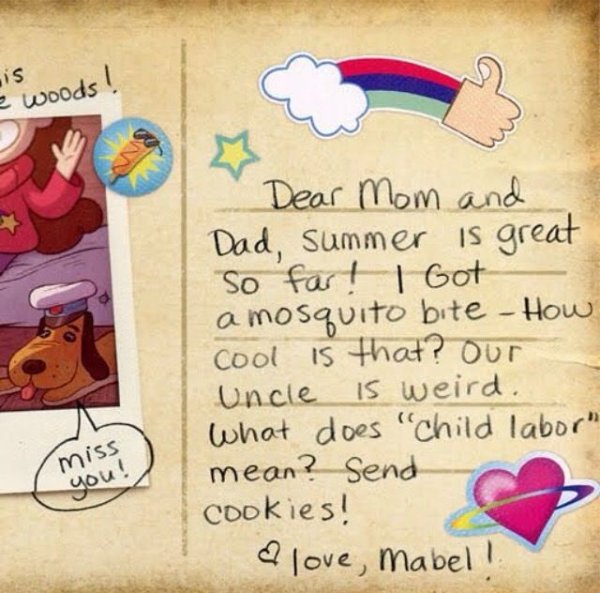 is
woods!
miss
you!
Dear Mom and
Dad, summer is great
so far! I Got
a mosquito bite - How
cool is that? Our
Uncle is weird.
What does "child labor"
mean? Send
cookies!
love, Mabel!